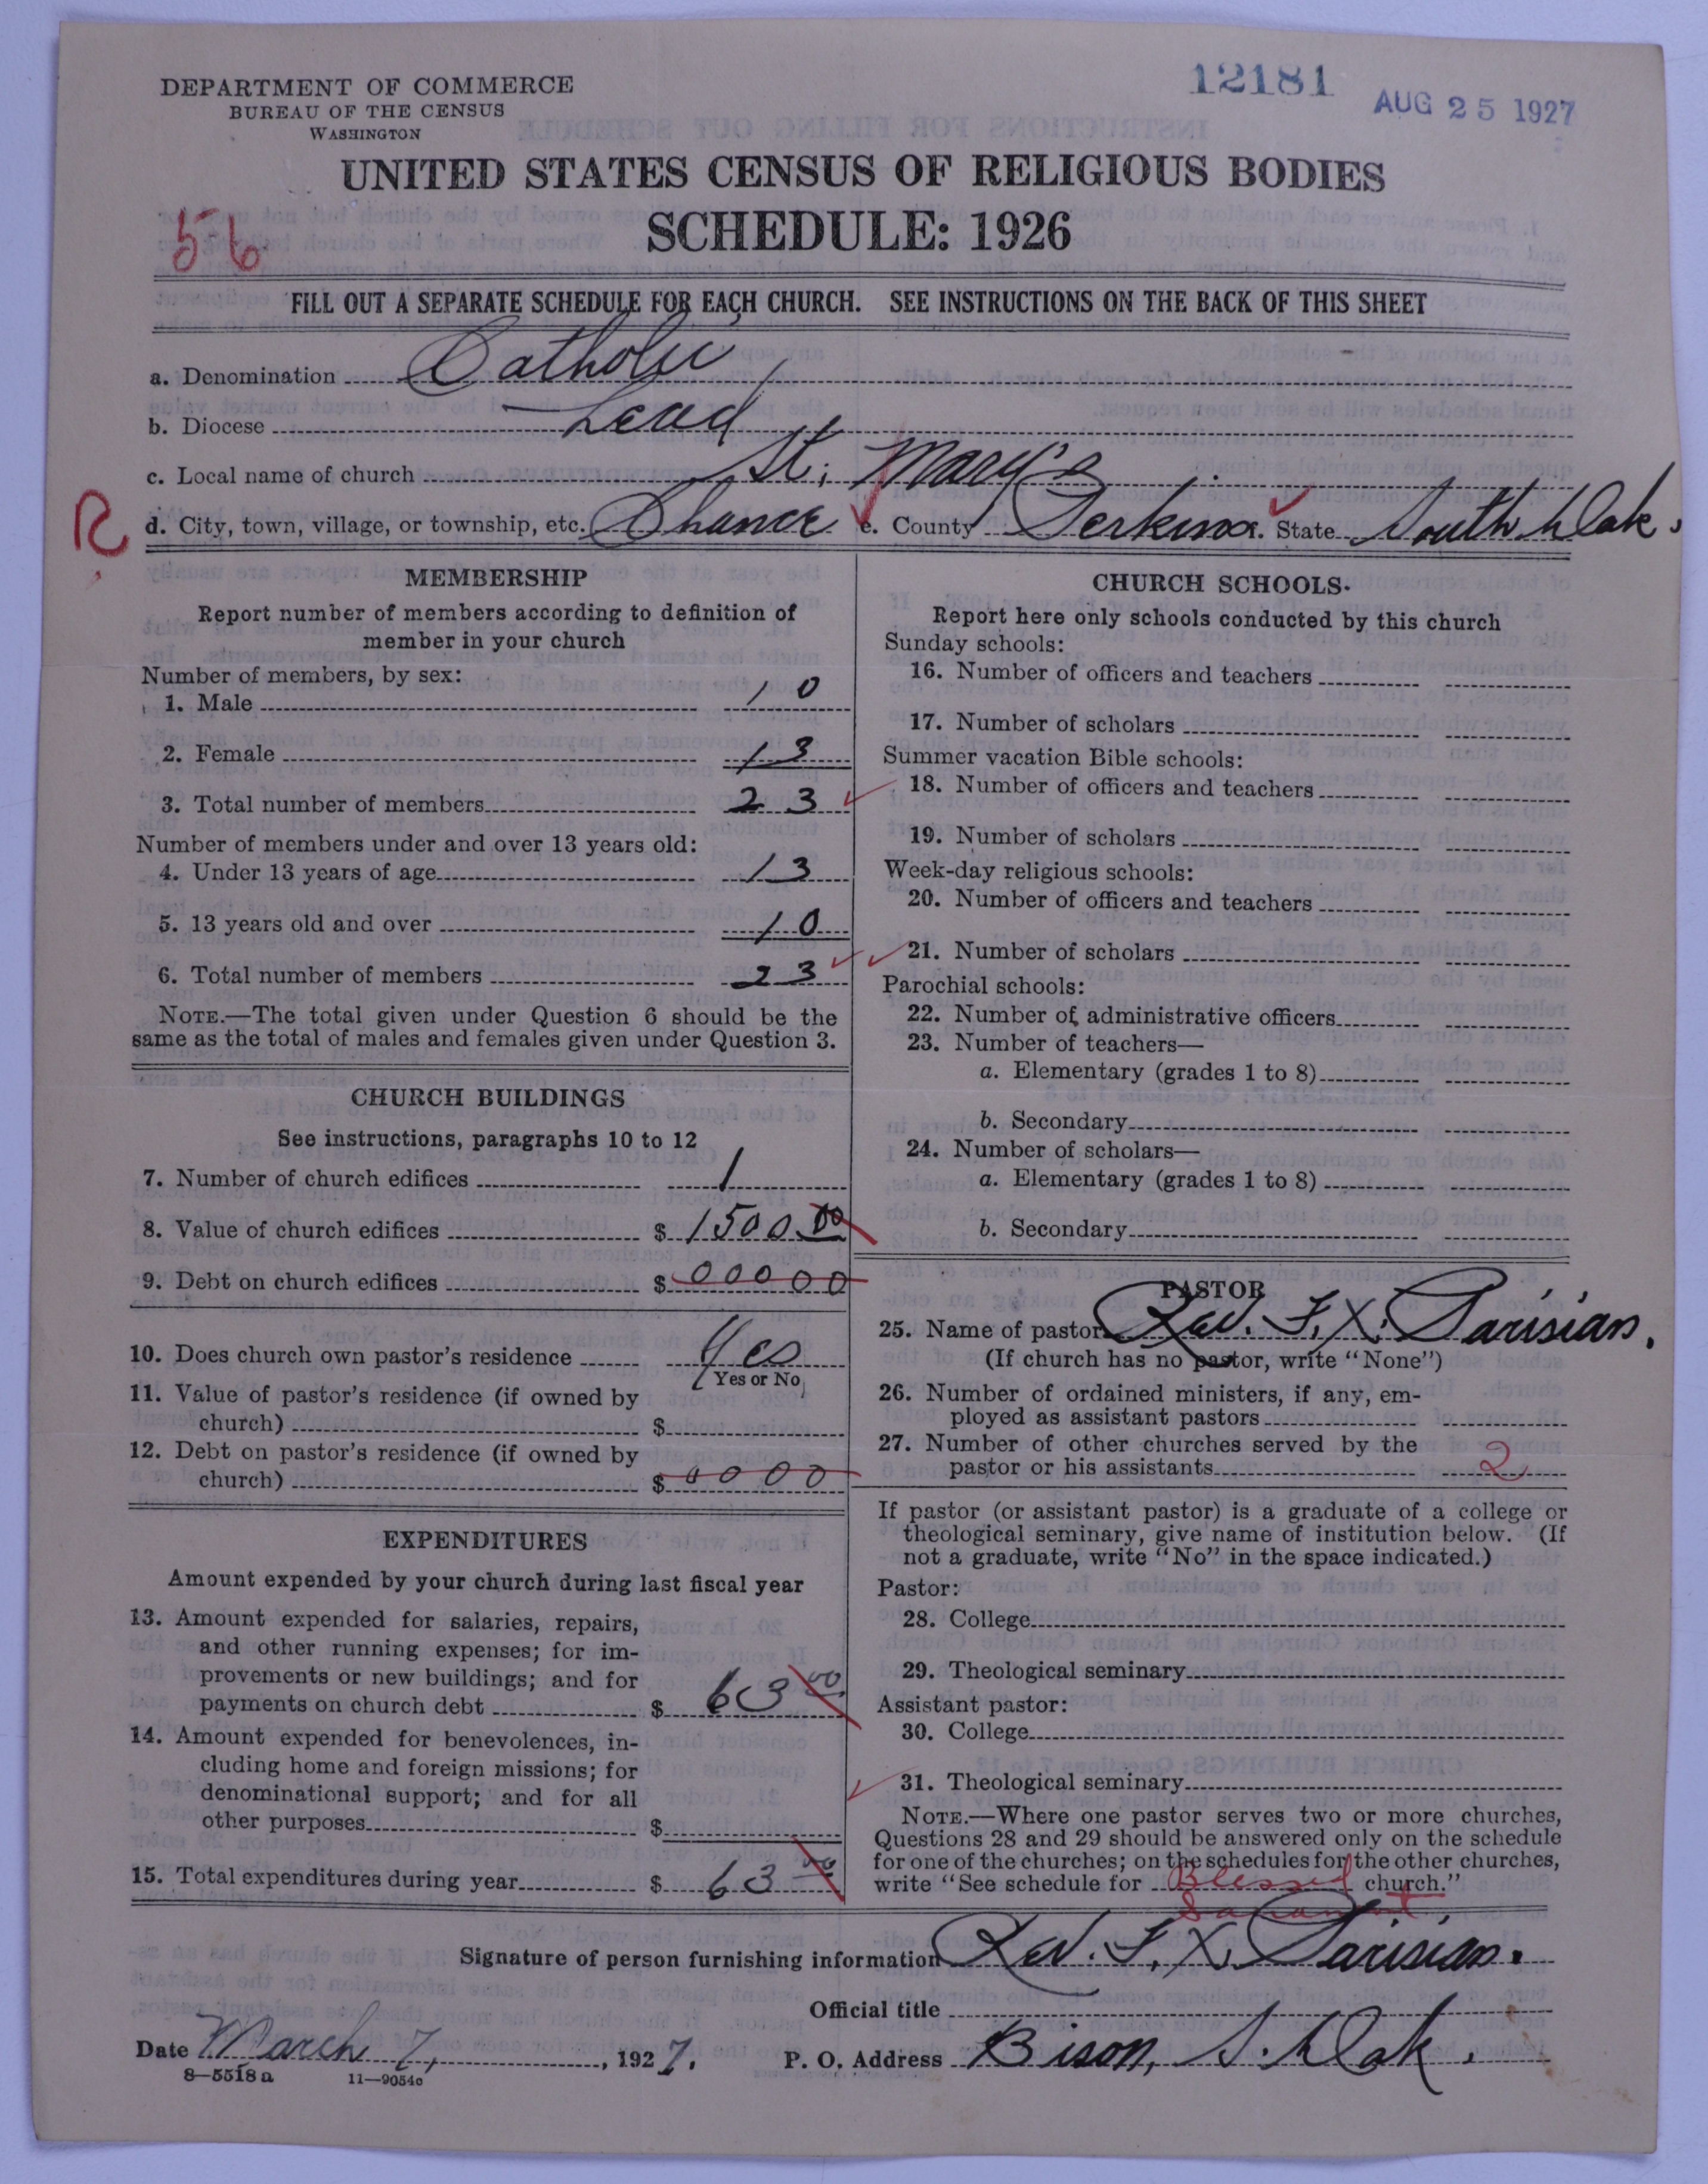 DEPARTMENT OF COMMERCE
BUREAU OF THE CENSUS
WASHINGTON
12181
AUG 25 1927
UNITED STATES CENSUS OF RELIGIOUS BODIES
SCHEDULE: 1926
56
FILL OUT A SEPARATE SCHEDULE FOR EACH CHURCH. SEE INSTRUCTIONS ON THE BACK OF THIS SHEET
a. Denomination Catholic
b. Diocese Lead
c. Local name of church St. Mary's
R
d. City, town, village, or township, etc. Chance e. County Perkins f. State South Dak.
MEMBERSHIP
Report number of members according to definition of
member in your church
Number of members, by sex:
1. Male 10
2. Female 13
3. Total number of members 23
Number of members under and over 13 years old:
4. Under 13 years of age 13
5. 13 years old and over 10
6. Total number of members 23
NOTE.—The total given under Question 6 should be the
same as the total of males and females given under Question 3.
CHURCH BUILDINGS
See instructions, paragraphs 10 to 12
7. Number of church edifices 1
8. Value of church edifices $ 1500 00
9. Debt on church edifices $ 00000
10. Does church own pastor's residence Yes
Yes or No
11. Value of pastor's residence (if owned by
church) $
12. Debt on pastor's residence (if owned by
church) $ 0000
EXPENDITURES
Amount expended by your church during last fiscal year
13. Amount expended for salaries, repairs,
and other running expenses; for im-
provements or new buildings; and for
payments on church debt $ 63 00
14. Amount expended for benevolences, in-
cluding home and foreign missions; for
denominational support; and for all
other purposes $
15. Total expenditures during year $ 63 00
CHURCH SCHOOLS
Report here only schools conducted by this church
Sunday schools:
16. Number of officers and teachers
17. Number of scholars
Summer vacation Bible schools:
18. Number of officers and teachers
19. Number of scholars
Week-day religious schools:
20. Number of officers and teachers
21. Number of scholars
Parochial schools:
22. Number of administrative officers
23. Number of teachers—
a. Elementary (grades 1 to 8)
b. Secondary
24. Number of scholars—
a. Elementary (grades 1 to 8)
b. Secondary
PASTOR
25. Name of pastor Rev. F. X. Parisian.
(If church has no pastor, write "None")
26. Number of ordained ministers, if any, em-
ployed as assistant pastors
27. Number of other churches served by the
pastor or his assistants 2
If pastor (or assistant pastor) is a graduate of a college or
theological seminary, give name of institution below. (If
not a graduate, write "No" in the space indicated.)
Pastor:
28. College
29. Theological seminary
Assistant pastor:
30. College
31. Theological seminary
NOTE.—Where one pastor serves two or more churches,
Questions 28 and 29 should be answered only on the schedule
for one of the churches; on the schedules for the other churches,
write "See schedule for Blessed church."
Signature of person furnishing information Rev. F. X. Parisian.
Official title
Date March 7, 1927. P. O. Address Bison, S. Dak.
8—5518a 11—9054c